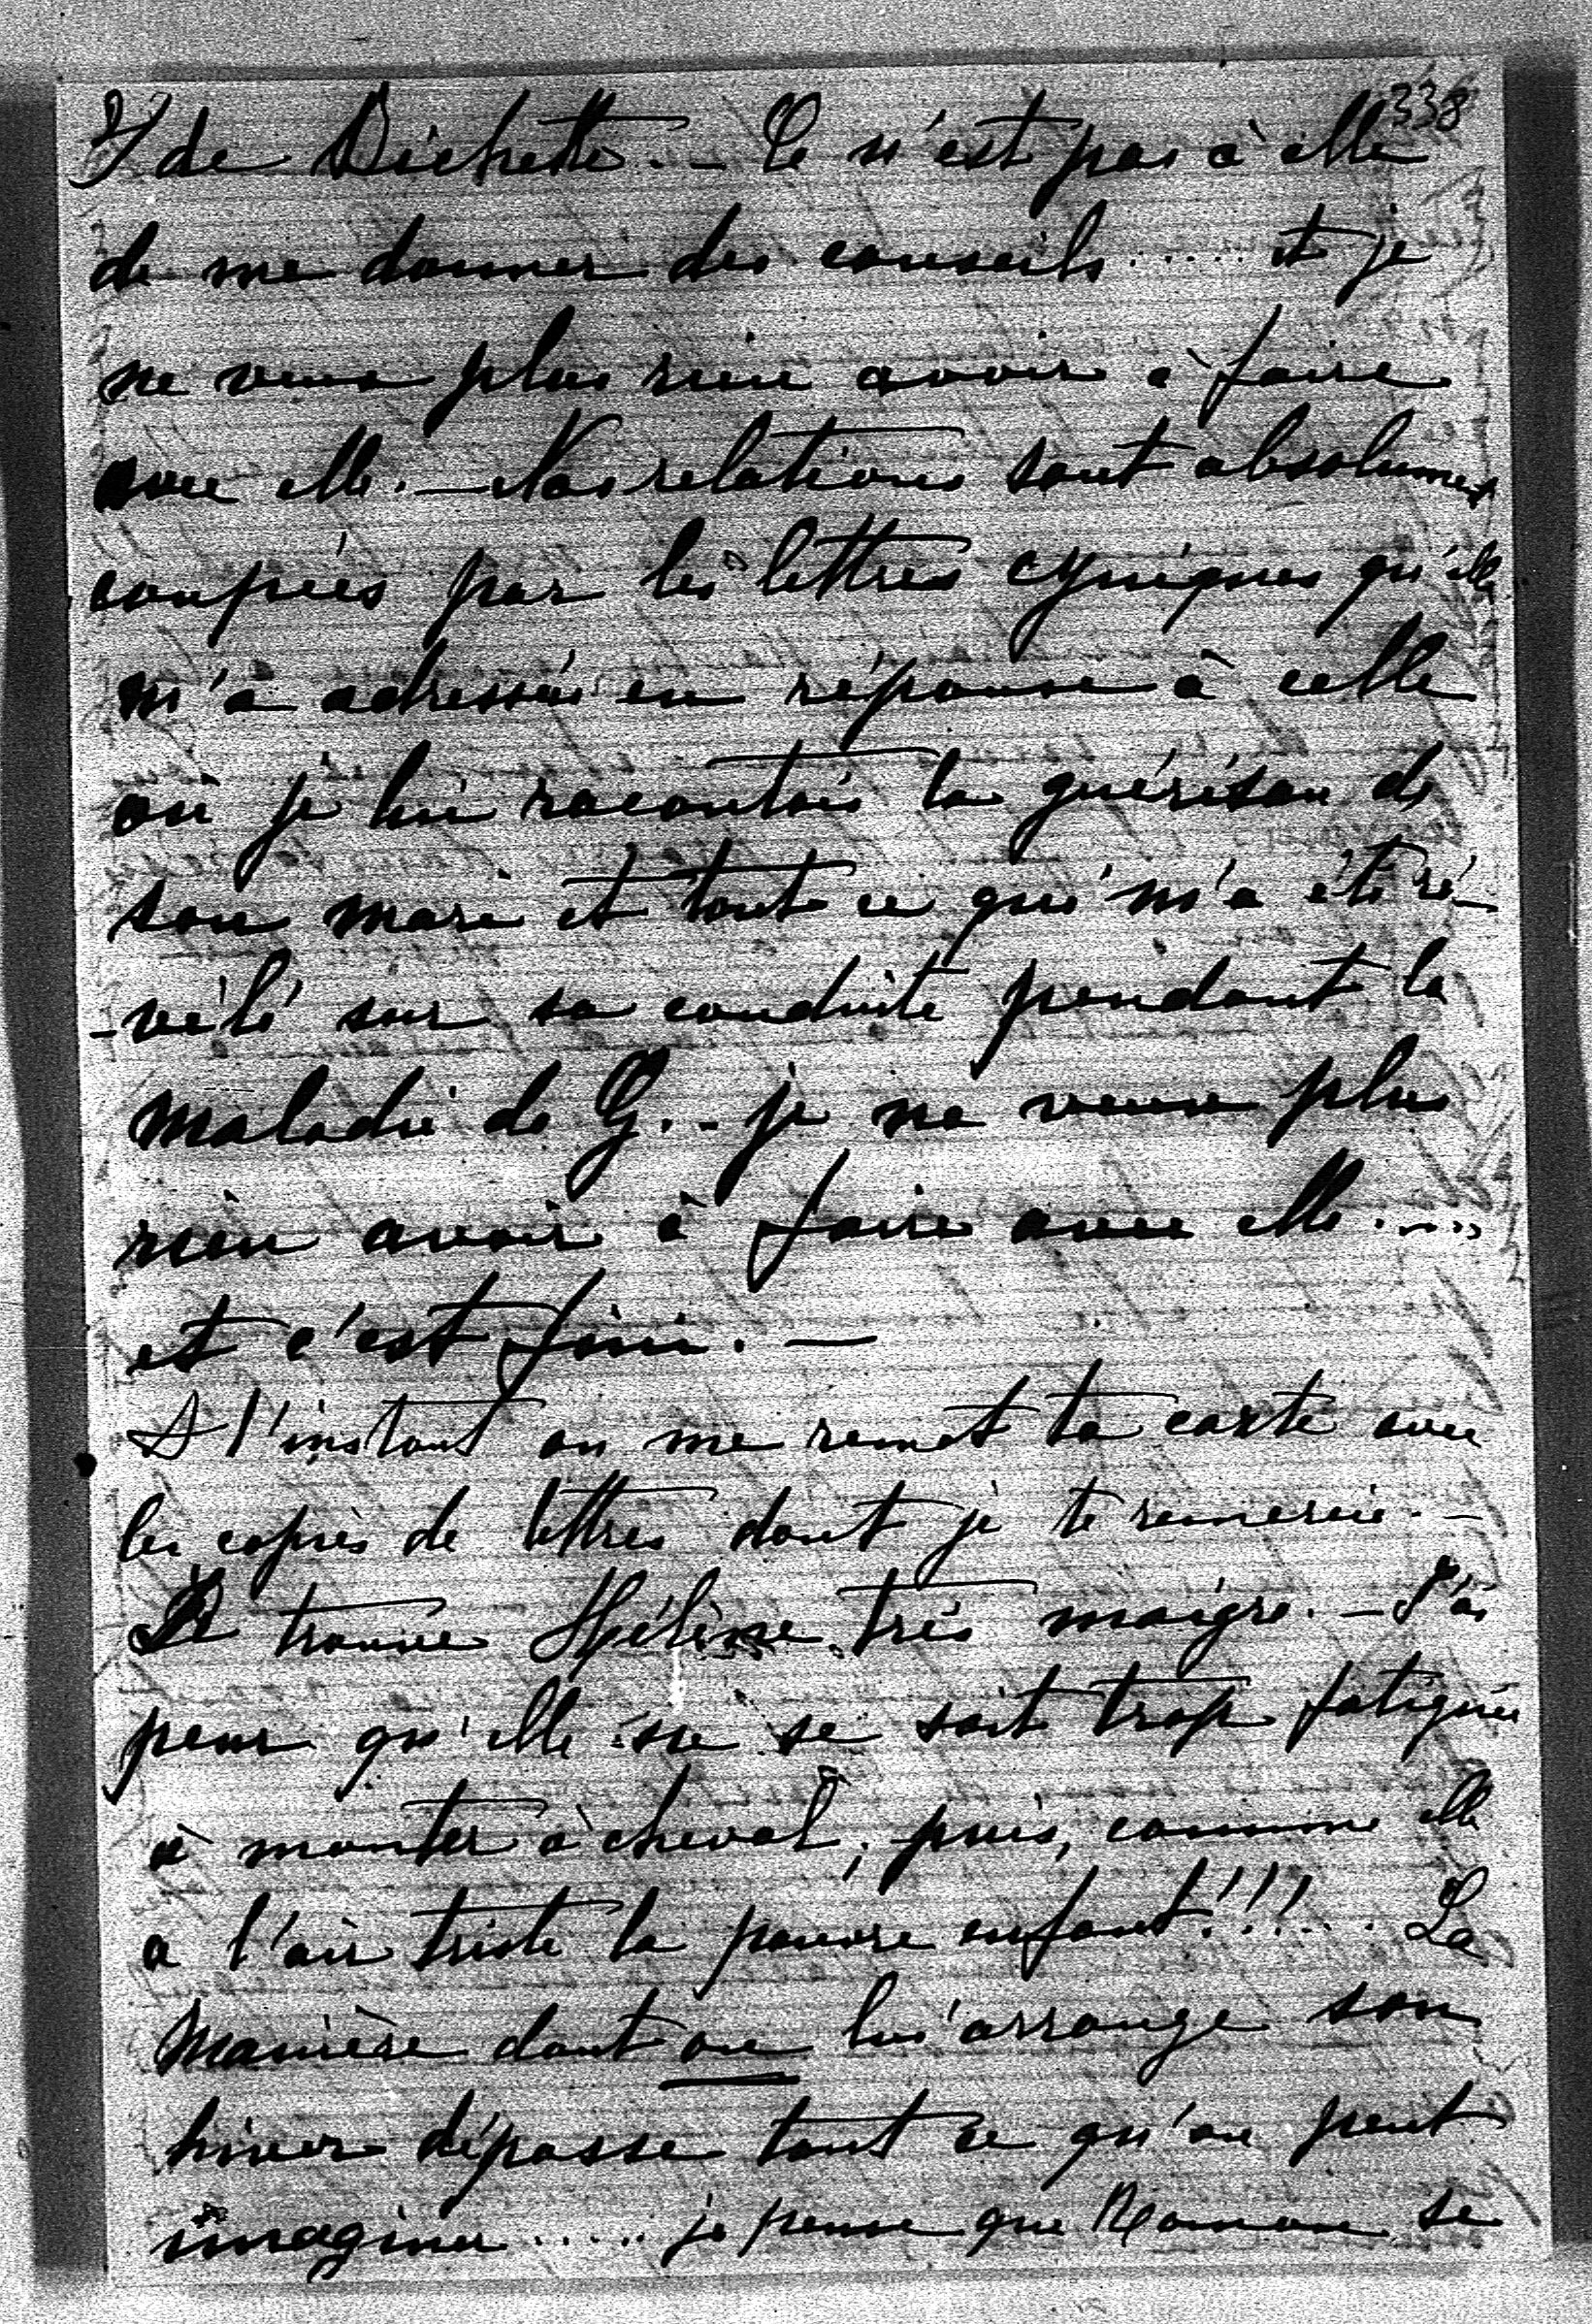 338
2/ de Dichette. – Ce n'est pas à elle
de me donner des conseils ..... et je
ne veux plus rien avoir à faire
avec elle. – Nos relations sont absolument
coupées par les lettres cyniques qu'elle
m'a adressées en réponse à celle
où je lui racontais la guérison de
son mari et tout ce qui m'a été ré-
-vélé sur sa conduite pendant la
maladie de G. . – je ne veux plus
rien avoir à faire avec elle .....
et c'est fini. –
A l'instant on me remet ta carte avec
les copies de lettres dont je te remercie. –
Je trouve Hélène très maigre. – J'ai
peur qu'elle ne se soit trop fatiguée
à monter à cheval, puis, comme elle
a l'air triste la pauvre enfant!!!... La
manière dont on lui arrange son
hiver dépasse tout ce qu'on peut
imaginer ..... je pense que Maman se